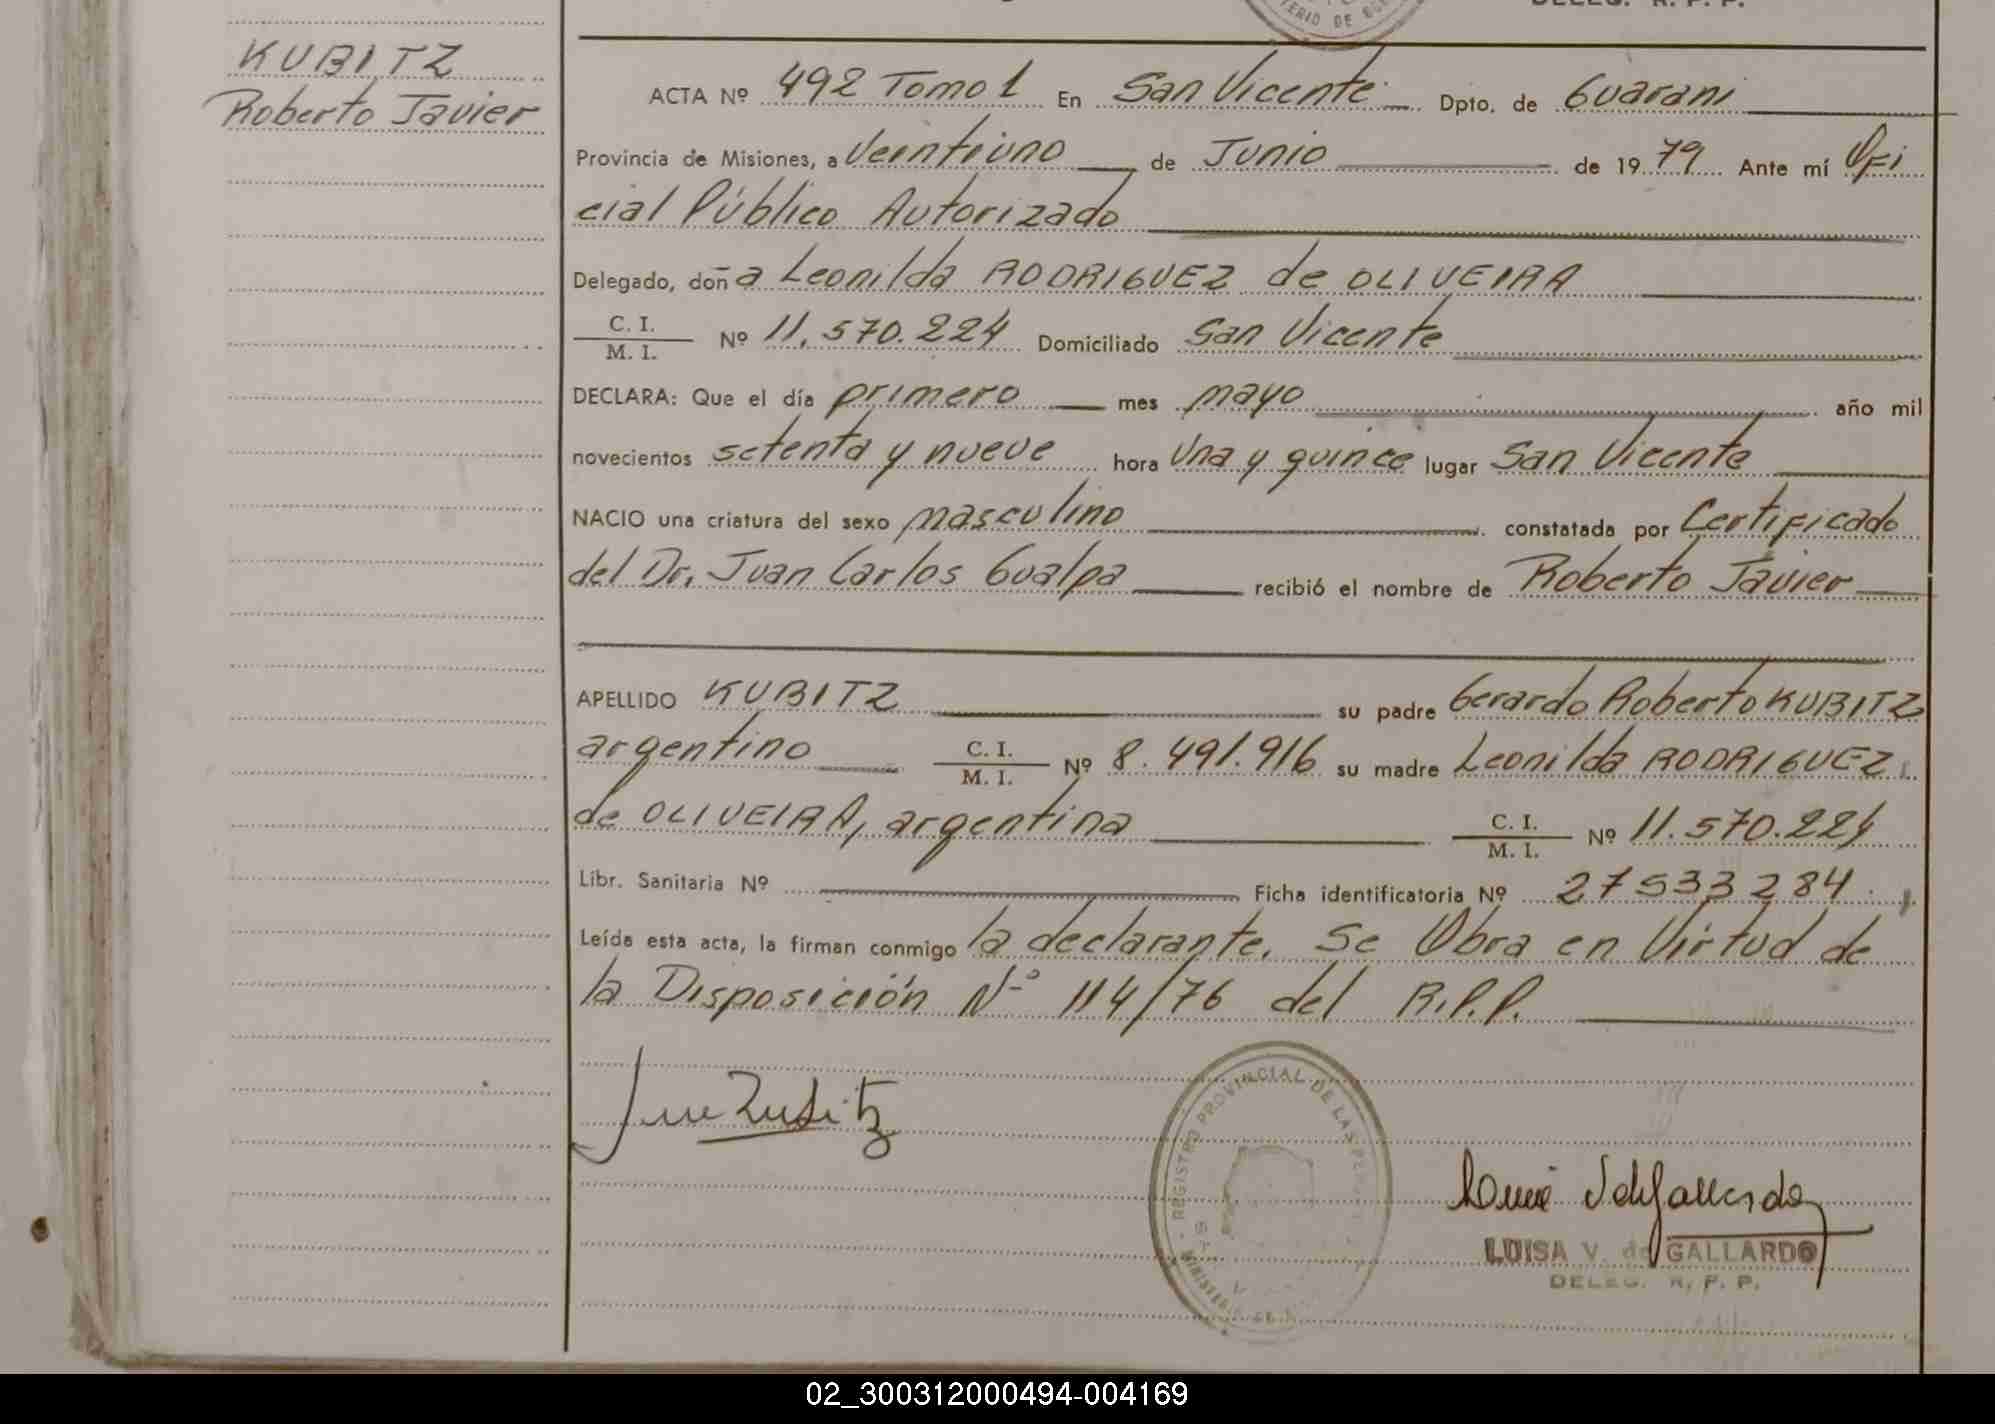 DELEG. R. P. P.
KUBITZ
Roberto Javier
ACTA Nº 492 Tomo 1 En San Vicente Dpto. de Guarani
Provincia de Misiones, a Veintiuno de Junio de 1979 Ante mí Ofi
cial Público Autorizado
Delegado, doña Leonilda RODRIGUEZ de OLIVEIRA
C. I.
M. I. Nº 11.570.224 Domiciliado San Vicente
DECLARA: Que el día primero mes mayo año mil
novecientos setenta y nueve hora Una y quince lugar San Vicente
NACIO una criatura del sexo masculino constatada por Certificado
del Dr. Juan Carlos Gualpa recibió el nombre de Roberto Javier
APELLIDO KUBITZ su padre Gerardo Roberto KUBITZ
argentino C. I. M. I. Nº 8.491.916 su madre Leonilda RODRIGUEZ
de OLIVEIRA, argentina C. I. M. I. Nº 11.570.224
Libr. Sanitaria Nº Ficha identificatoria Nº 27533284
Leída esta acta, la firman conmigo la declarante. Se Obra en Virtud de
la Disposición Nº 114/76 del R.P.P.
REGISTRO PROVINCIAL DE LAS
LUISA V. de GALLARDO
DELEG. R. P. P.
02_300312000494-004169